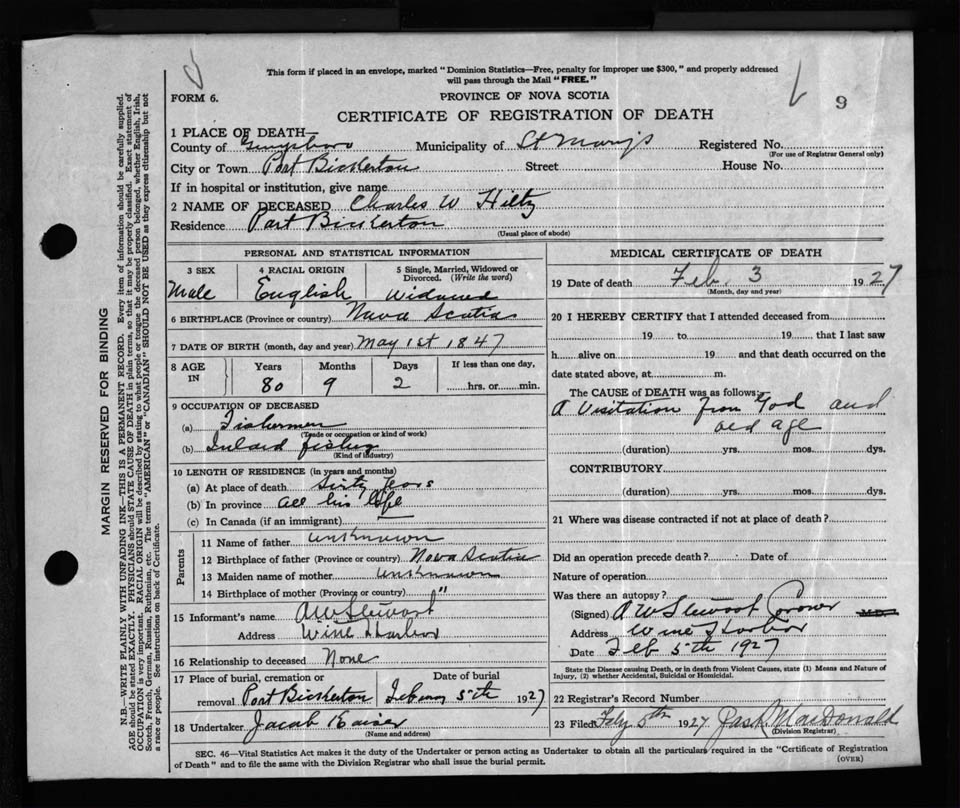 This form if placed in an envelope, marked "Dominion Statistics—Free, penalty for improper use $300," and properly addressed
will pass through the Mail "FREE."
FORM 6.
PROVINCE OF NOVA SCOTIA
9
CERTIFICATE OF REGISTRATION OF DEATH
1 PLACE OF DEATH
County of Guysboro Municipality of St Marys Registered No.
(For use of Registrar General only)
City or Town Port Bickerton Street House No.
If in hospital or institution, give name
2 NAME OF DECEASED Charles W Hiltz
Residence Port Bickerton
(Usual place of abode)
PERSONAL AND STATISTICAL INFORMATION
3 SEX 4 RACIAL ORIGIN 5 Single, Married, Widowed or
Divorced. (Write the word)
Male English Widowed
6 BIRTHPLACE (Province or country) Nova Scotia
7 DATE OF BIRTH (month, day and year) May 1st 1847
8 AGE IN Years Months Days If less than one day,
80 9 2 hrs. or min.
9 OCCUPATION OF DECEASED
(a) Fishermen
(Trade or occupation or kind of work)
(b) Inland fishing
(Kind of industry)
10 LENGTH OF RESIDENCE (in years and months)
(a) At place of death Sixty Years
(b) In province all his life
(c) In Canada (if an immigrant)
Parents
11 Name of father unknown
12 Birthplace of father (Province or country) Nova Scotia
13 Maiden name of mother unknown
14 Birthplace of mother (Province or country) "
15 Informant's name A W Stewart
Address Wine Harbor
16 Relationship to deceased None
17 Place of burial, cremation or Date of burial
removal Port Bickerton 5th 1927
18 Undertaker Jacob Kaiser
(Name and address)
MEDICAL CERTIFICATE OF DEATH
19 Date of death Feb. 3 1927
(Month, day and year)
20 I HEREBY CERTIFY that I attended deceased from
19 to 19 that I last saw
h alive on 19 and that death occurred on the
date stated above, at m.
The CAUSE of DEATH was as follows:
A Visitation from God and
old age
(duration) yrs. mos. dys.
CONTRIBUTORY
(duration) yrs. mos. dys.
21 Where was disease contracted if not at place of death?
Did an operation precede death? Date of
Nature of operation
Was there an autopsy?
(Signed) A W Stewart Coroner M.D.
Address Wine Harbor
Date Feb 5th 1927
State the Disease causing Death, or in death from Violent Causes, state (1) Means and Nature of
Injury, (2) whether Accidental, Suicidal or Homicidal.
22 Registrar's Record Number
23 Filed 5th 1927 MacDonald
(Division Registrar)
SEC. 46—Vital Statistics Act makes it the duty of the Undertaker or person acting as Undertaker to obtain all the particulars required in the "Certificate of Registration
of Death" and to file the same with the Division Registrar who shall issue the burial permit.
(OVER)
MARGIN RESERVED FOR BINDING
N.B.—WRITE PLAINLY WITH UNFADING INK—THIS IS A PERMANENT RECORD. Every item of information should be carefully supplied.
AGE should be stated EXACTLY. PHYSICIANS should STATE CAUSE OF DEATH in plain terms, so that it may be properly classified. Exact statement of
OCCUPATION is very important. RACIAL ORIGIN will be described by stating to what people or tongue the deceased person belonged, whether English, Irish,
Scotch, French, German, Russian, Ruthenian, etc. The terms "AMERICAN" or "CANADIAN" SHOULD NOT BE USED as they express citizenship but not
a race or people. See instructions on back of Certificate.